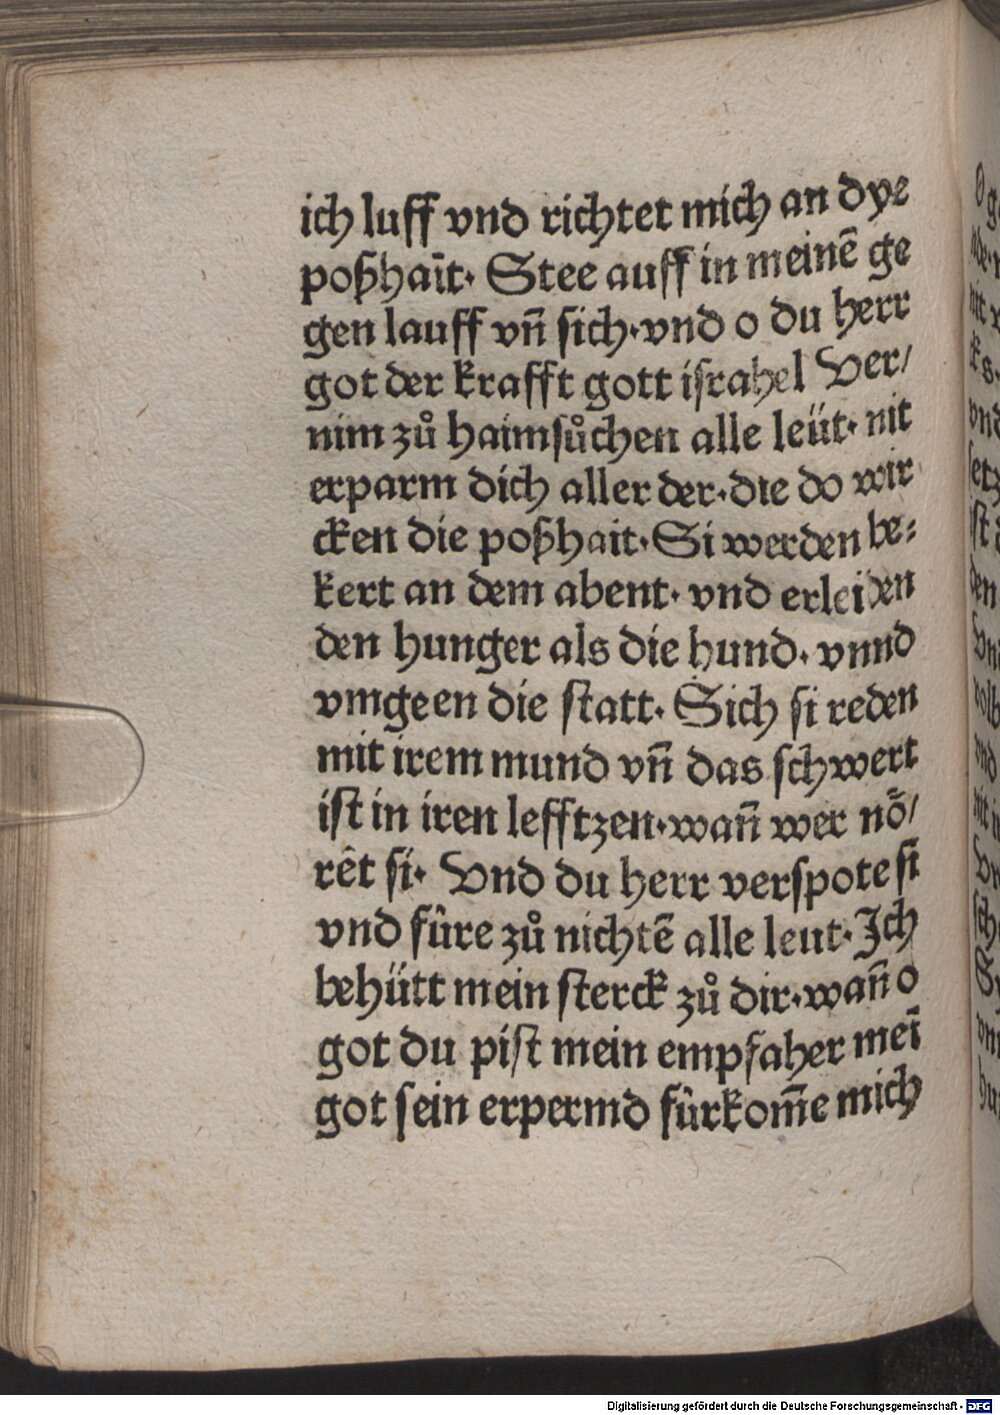 ich luff vnd richtet mich an dye
poßhait· Stee auff in meinē ge
gen lauff vn̄ sich·vnd o du herr
got der krafft gott israhel Ver/
nim zů haimsůchen alle leüt· nit
erparm dich aller der·die do wir
cken die poßhait·Si werden be⸗
kert an dem abent· vnd erleiden
den hunger als die hund· vnnd
vmgeen die statt· Sich si reden
mit irem mund vn̄ das schwert
ist in iren lefftzen·wan̄ wer nõ/
rêt si· Vnd du herr verspotest
vnd fûre zů nichtē alle leut·Ich
behütt mein sterck zů dir·wan̄ o
got du pist mein empfaher meī
got sein erpermd fûrkom̄e mich
Digitalisierung gefördert durch die Deutsche Forschungsgemeinschaft - DFG